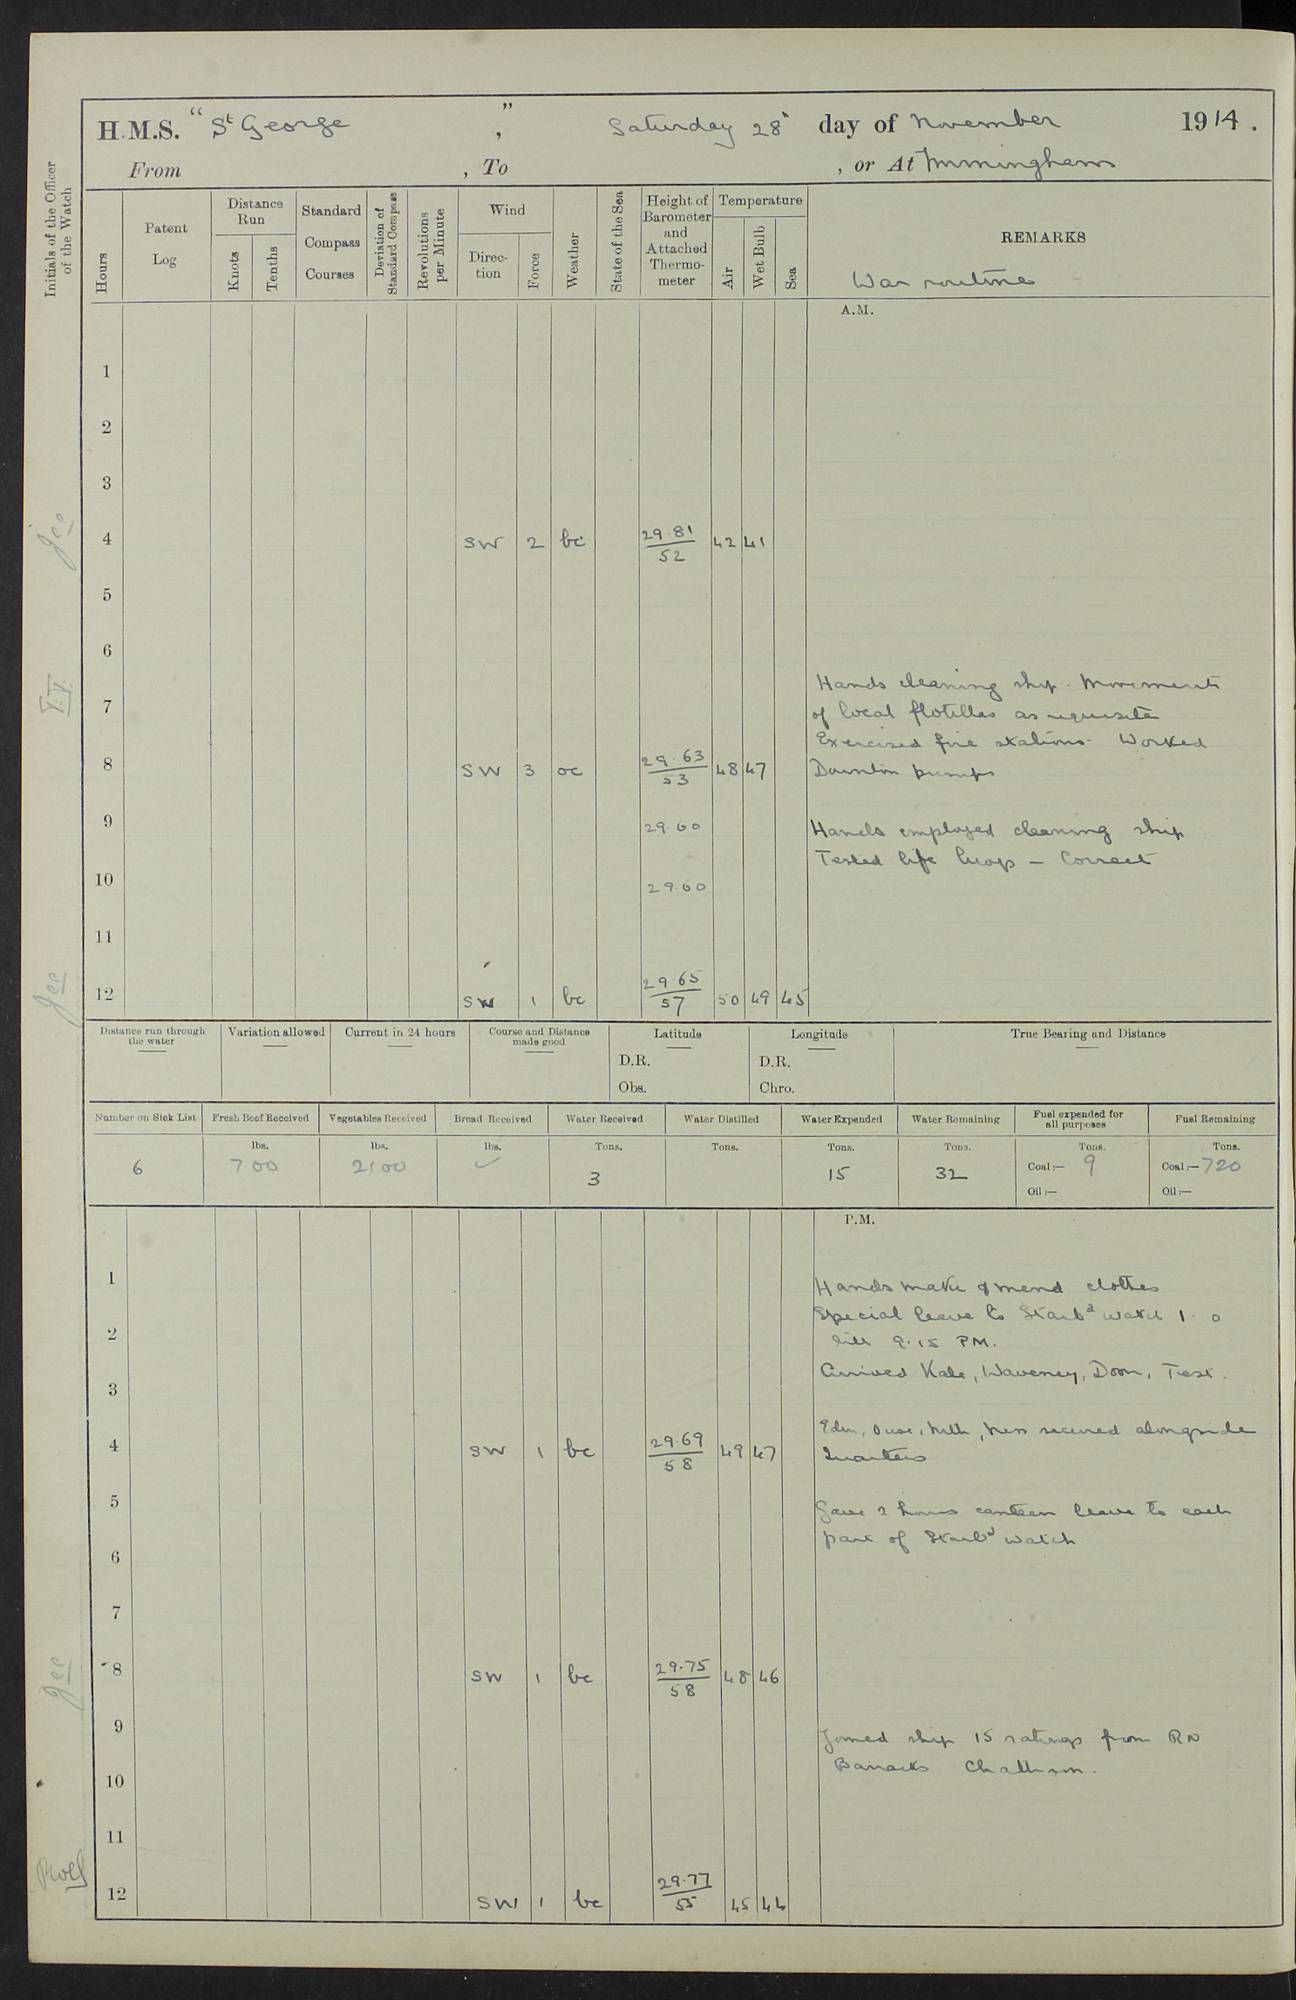 H.M.S. " St George " , Saturday 28th day of November 1914.
From , To , or At Immingham
Initials of the Officer of the Watch
Hours
Patent Log
Distance Run
Knots
Tenths
Standard Compass Courses
Deviation of Standard Compass
Revolutions per Minute
Wind
Direction
Force
Weather
State of the Sea
Height of Barometer and Attached Thermometer
Temperature
Air
Wet Bulb
Sea
REMARKS
War routine
A.M.
1
2
3
4 SW 2 bc 29.81/52 42 41
5
6
Hands cleaning ship. Movements
7 of local flotillas as requisite
Exercised fire stations. Worked
8 SW 3 oc 29.63/53 48 47 Downton pumps
9 29.60 Hands employed cleaning ship
Tested life buoys – Correct
10 29.60
11
12 SW 1 bc 29.65/57 50 49 45
Distance run through the water
Variation allowed
Current in 24 hours
Course and Distance made good
Latitude
D.R.
Obs.
Longitude
D.R.
Chro.
True Bearing and Distance
Number on Sick List Fresh Beef Received Vegetables Received Bread Received Water Received Water Distilled Water Expended Water Remaining Fuel expended for all purposes Fuel Remaining
lbs. lbs. lbs. Tons. Tons. Tons. Tons. Tons. Tons.
6 700 2100 ✓ 3 15 32 Coal:— 9 Coal:—720
Oil:— Oil:—
P.M.
1 Hands make & mend clothes
Special leave to Starbd watch 1.0
2 till 9.15 PM.
3 Arrived Kale, Waveney, Doon, Test.
Eden, Ouse, Nith, Ness secured alongside
4 SW 1 bc 29.69/58 49 47 Quarters
5 Gave 2 hours canteen leave to each
part of Starbd watch
6
7
8 SW 1 bc 29.75/58 48 46
9 Joined ship 15 ratings from RN
Barracks Chatham.
10
11
12 SW 1 bc 29.77/55 45 44